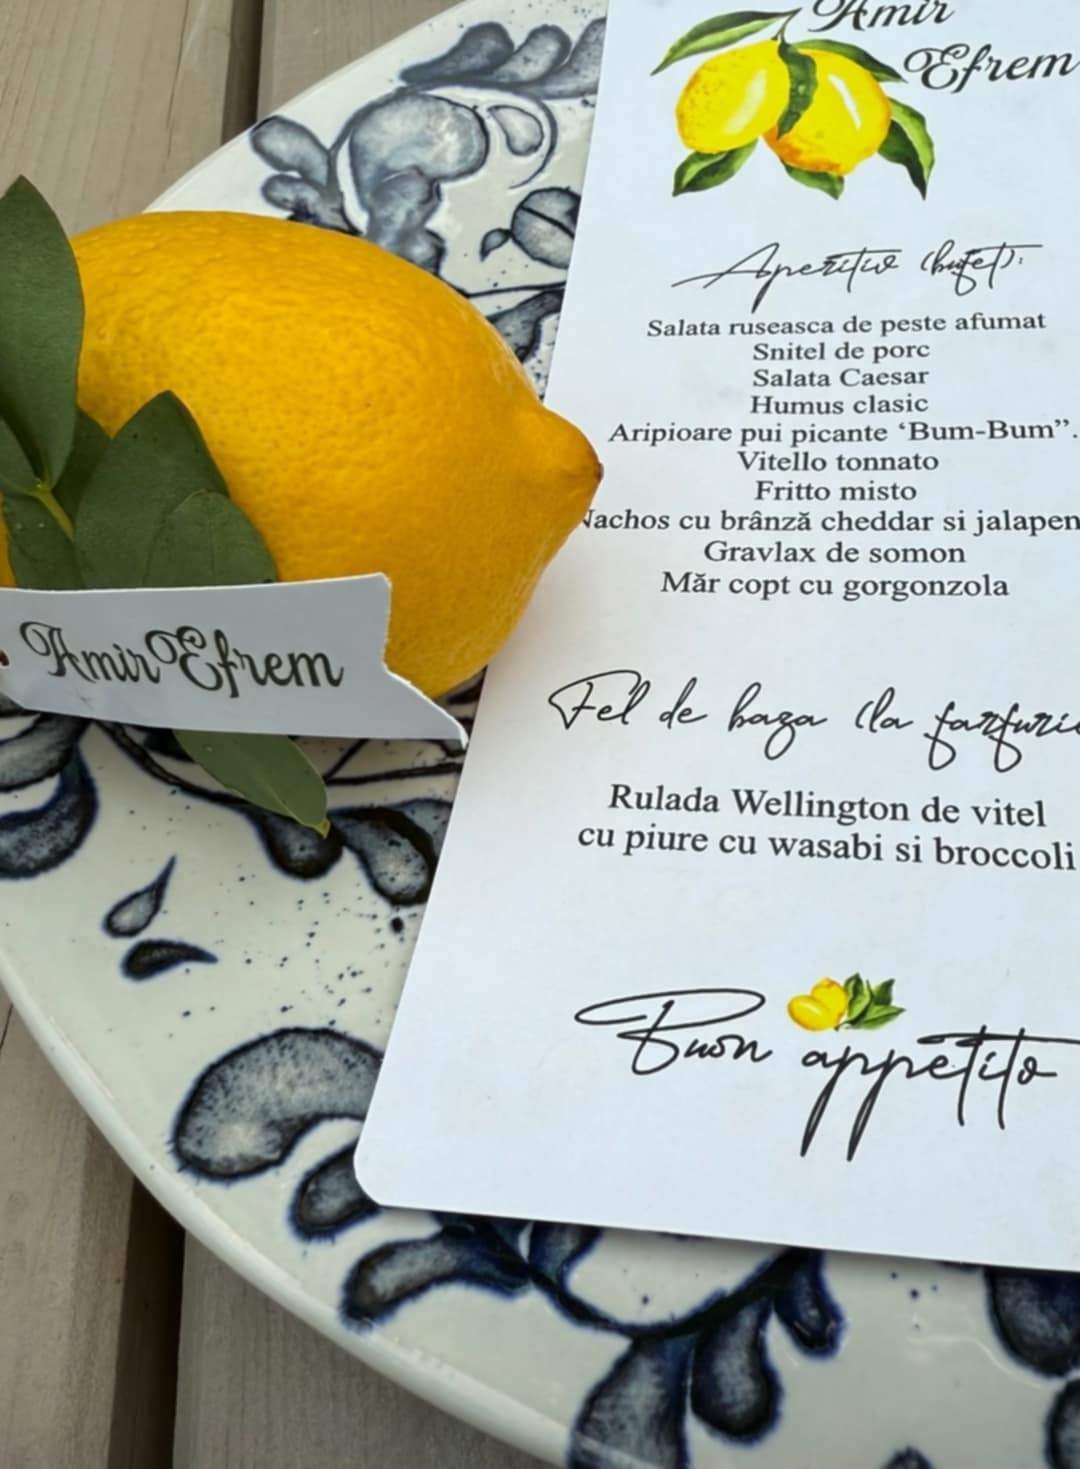 Amir
Efrem
Aperitiv (bufet):
Salata ruseasca de peste afumat
Snitel de porc
Salata Caesar
Humus clasic
Aripioare pui picante ‘Bum-Bum”.
Vitello tonnato
Fritto misto
Nachos cu brânză cheddar si jalapen
Gravlax de somon
Măr copt cu gorgonzola
Amir Efrem
Fel de baza (la farfurie
Rulada Wellington de vitel
cu piure cu wasabi si broccoli
Buon appetito